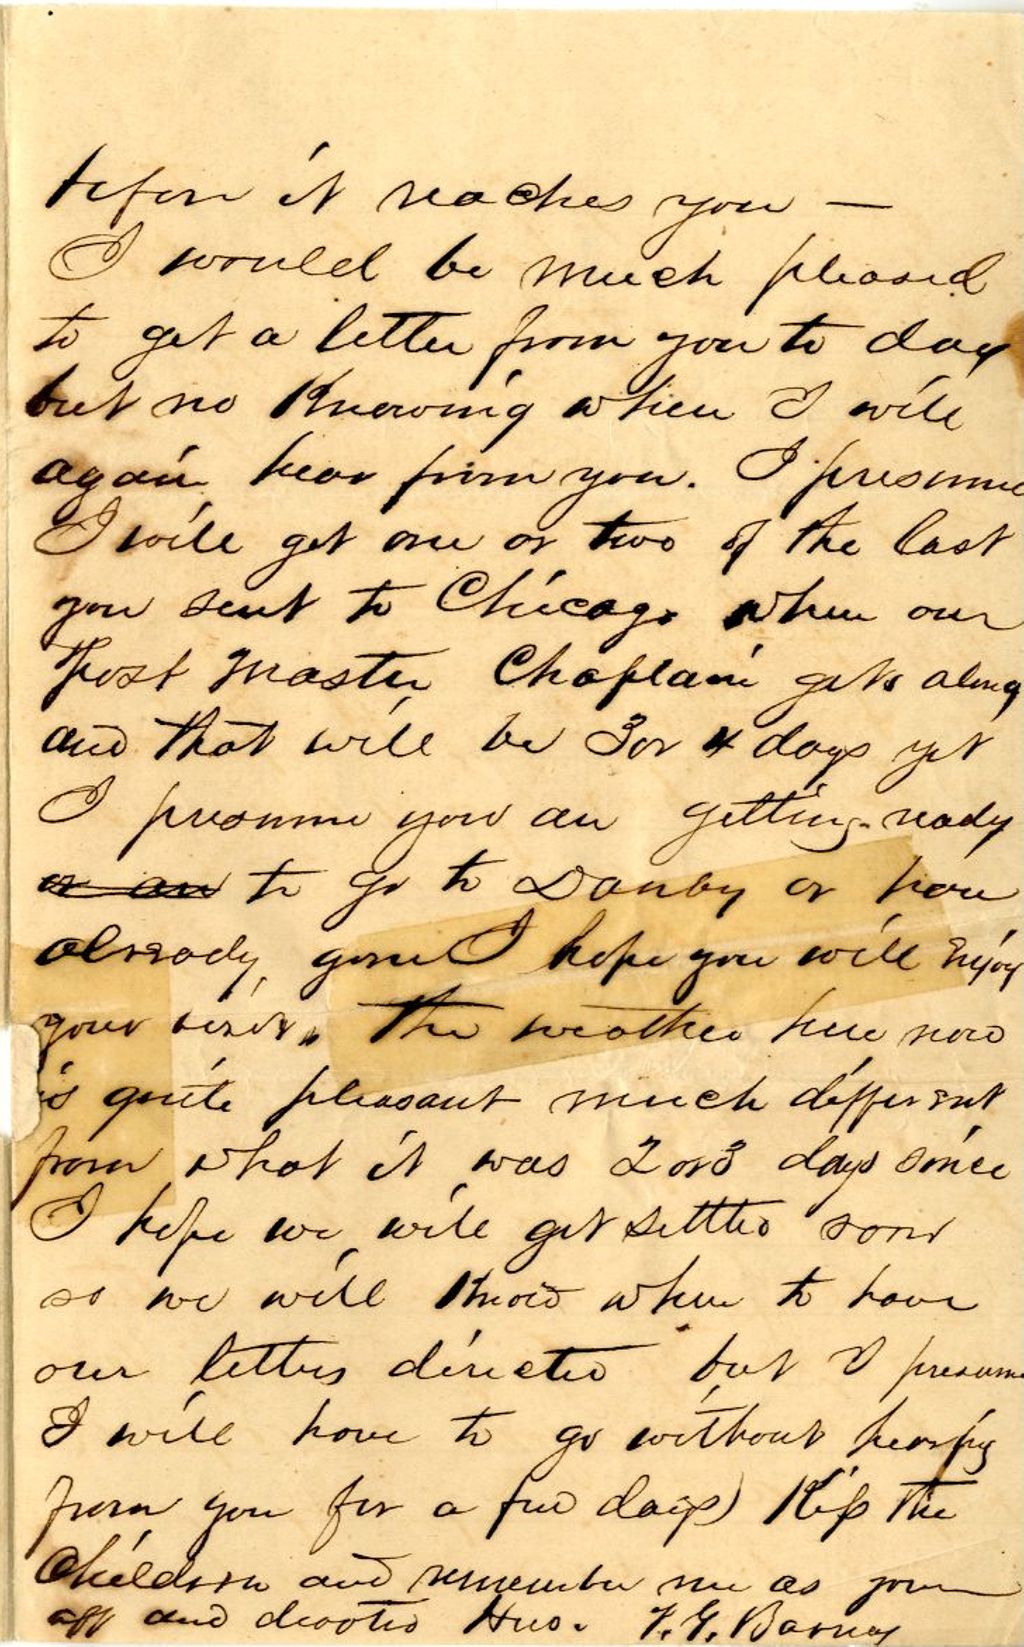 before it reaches you —
I would be much pleased
to get a letter from you to day
but no Knowing when I will
again hear from you. I presume
I will get one or two of the last
you sent to Chicago when our
Post Master Chaplain gets along
and that will be 3 or 4 days yet
I presume you are getting ready
or are to go to Danby or have
already gone I hope you will Enjoy
your visit. The weather here now
is quite pleasant much different
from what it was 2 or 3 days since
I hope we will get settled soon
so we will Know where to have
our letters directed but I presume
I will have to go without hearing
from you for a few days) Kiss the
Children and remember me as your
aff and devoted Hus. V. G. Barney